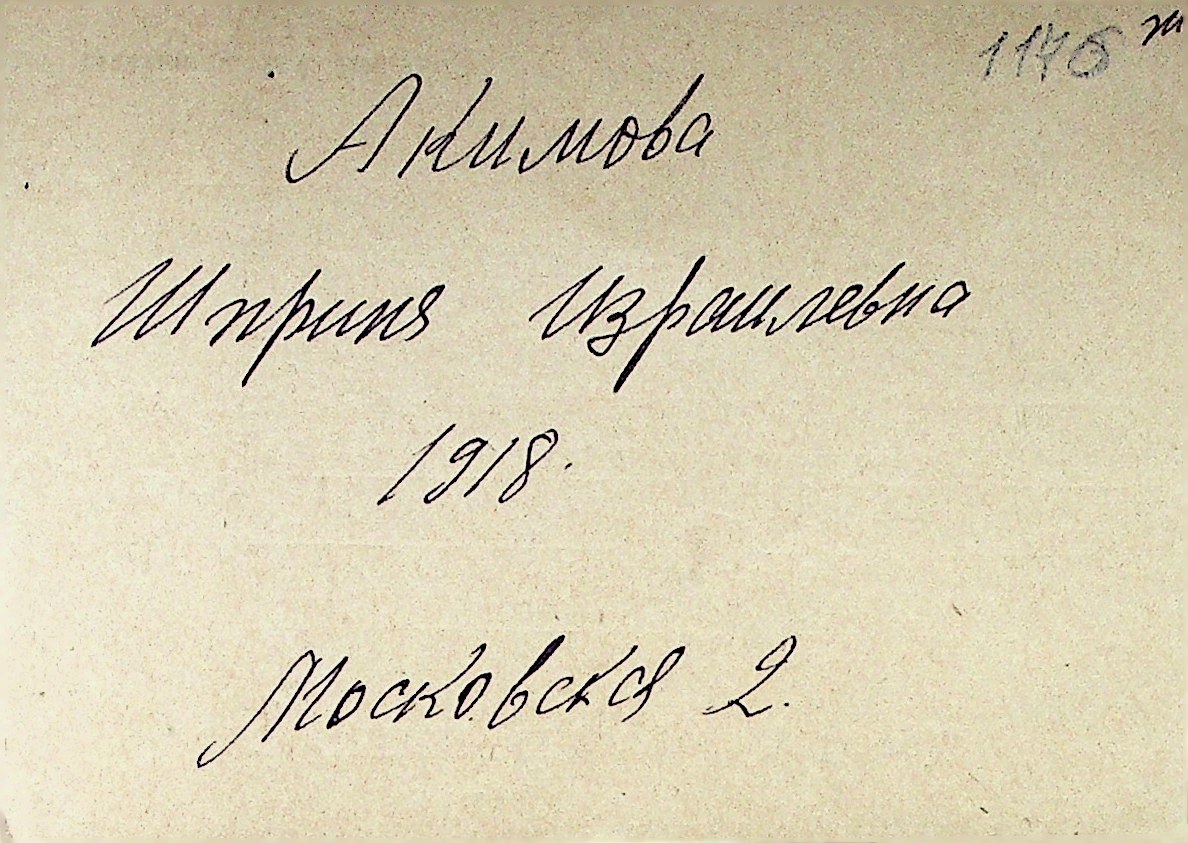 1176 ж
Акимова
Шприня Израилевна
1918.
Московская 2.